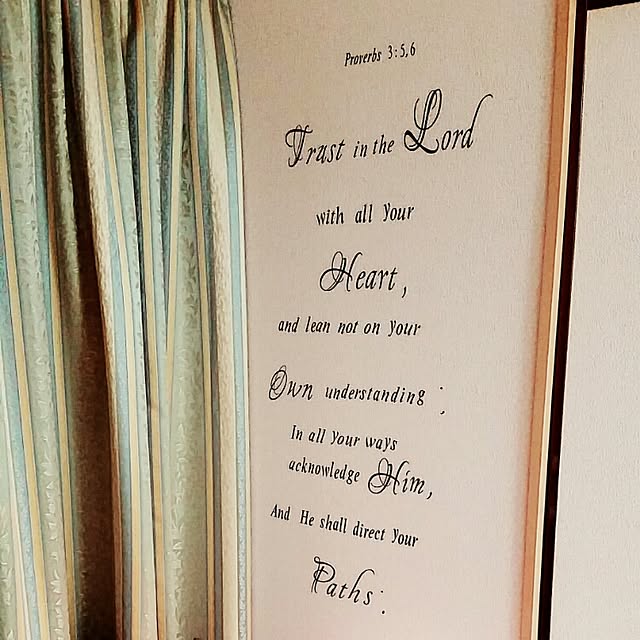 Proverbs 3:5,6
Trust in the Lord
with all your
Heart,
and lean not on your
Own understanding ;
In all your ways
acknowledge Him,
And He shall direct your
Paths: